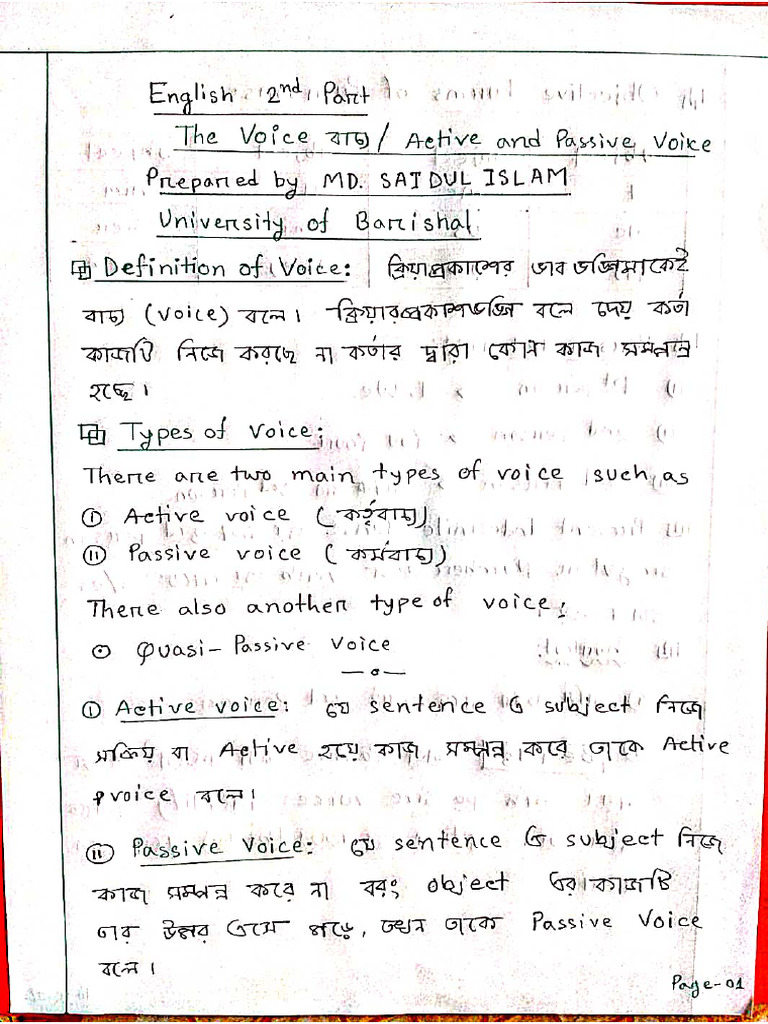 English 2nd Part
The Voice বাচ্য / Active and Passive Voice
Prepared by MD. SAIDUL ISLAM
University of Barishal
Definition of Voice: ক্রিয়াপ্রকাশের ভাব ভঙ্গিমাকেই
বাচ্য (voice) বলে। ক্রিয়ার প্রকাশভঙ্গি বলে দেয় কর্তা
কাজটি নিজে করছে না কর্তার দ্বারা কোন কাজ সম্পন্ন
হচ্ছে।
Types of Voice:
There are two main types of voice such as
(i) Active voice (কর্তৃবাচ্য)
(ii) Passive voice (কর্মবাচ্য)
There also another type of voice:
Quasi-Passive Voice
(i) Active voice: যে sentence এ subject নিজে
সক্রিয় বা Active হয়ে কাজ সম্পন্ন করে তাকে Active
voice বলে।
(ii) Passive Voice: যে sentence এ subject নিজে
কাজ সম্পন্ন করে না বরং object এর কাজটি
তার উপর এসে পড়ে, তখন তাকে Passive Voice
বলে।
Page-01